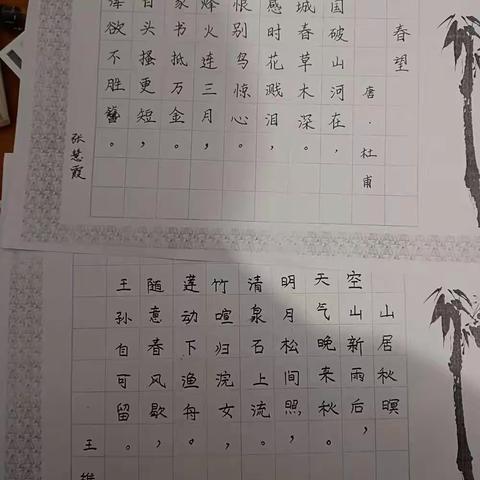 春望
唐·杜甫
国破山河在，
城春草木深。
感时花溅泪，
恨别鸟惊心。
烽火连三月，
家书抵万金。
白头搔更短，
浑欲不胜簪。
张慧霞
山居秋暝
空山新雨后，
天气晚来秋。
明月松间照，
清泉石上流。
竹喧归浣女，
莲动下渔舟。
随意春风歇，
王孙自可留。
王维